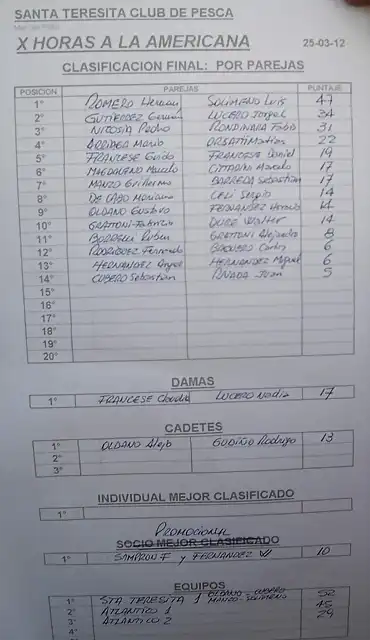 SANTA TERESITA CLUB DE PESCA
X HORAS A LA AMERICANA 25-03-12
CLASIFICACION FINAL: POR PAREJAS
POSICION PAREJAS PUNTAJE
1° ROMERO Hernan SOLIMENO Luis 47
2° GUTIERREZ German LUCERO Jorge 34
3° NICOSIA Pedro RONDINARA Fabio 31
4° Mario ORSATI Matias 22
5° FRANCESE Guido FRANCESE Daniel 19
6° MAGDALENO Marcelo CITTADINI Marcelo 17
7° MANZO Guillermo BARREDA Sebastian 17
8° DE CABO Mariano CELI Sergio 14
9° OLDANO Gustavo FERNANDEZ Horacio 14
10° GRATTONI Fabrizio Walter 14
11° Ruben GRATTONI Alejandro 8
12° RODRIGUEZ Fernando Carlos 6
13° HERNANDEZ Angel HERNANDEZ Miguel 6
14° CUBERO Sebastian Juan 5
15°
16°
17°
18°
19°
20°
DAMAS
1° FRANCESE Claudia LUCERO Nadia 17
CADETES
1° OLDANO Alejo GUDIÑO Rodrigo 13
2°
3°
INDIVIDUAL MEJOR CLASIFICADO
1°
PROMOCIONAL
SOCIO MEJOR CLASIFICADO
1° SAMPRON F y FERNANDEZ 10
EQUIPOS
1° STA TERESITA 1 OLDANO - CUBERO MANZO - SOLIMENO 52
2° ATLANTICO 1 45
3° ATLANTICO 2 29
4°